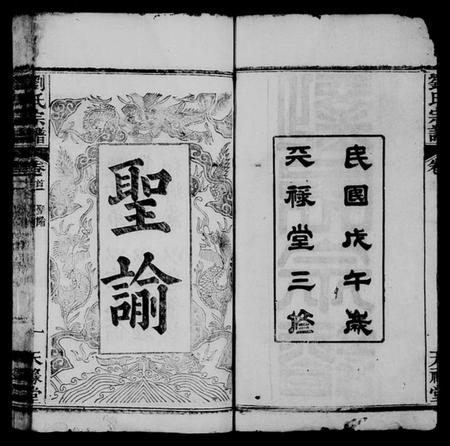 民國戊午歲
天祿堂三修
劉氏宗譜
卷
天祿堂
聖諭
劉氏宗譜
卷首
聖諭
一
天祿堂